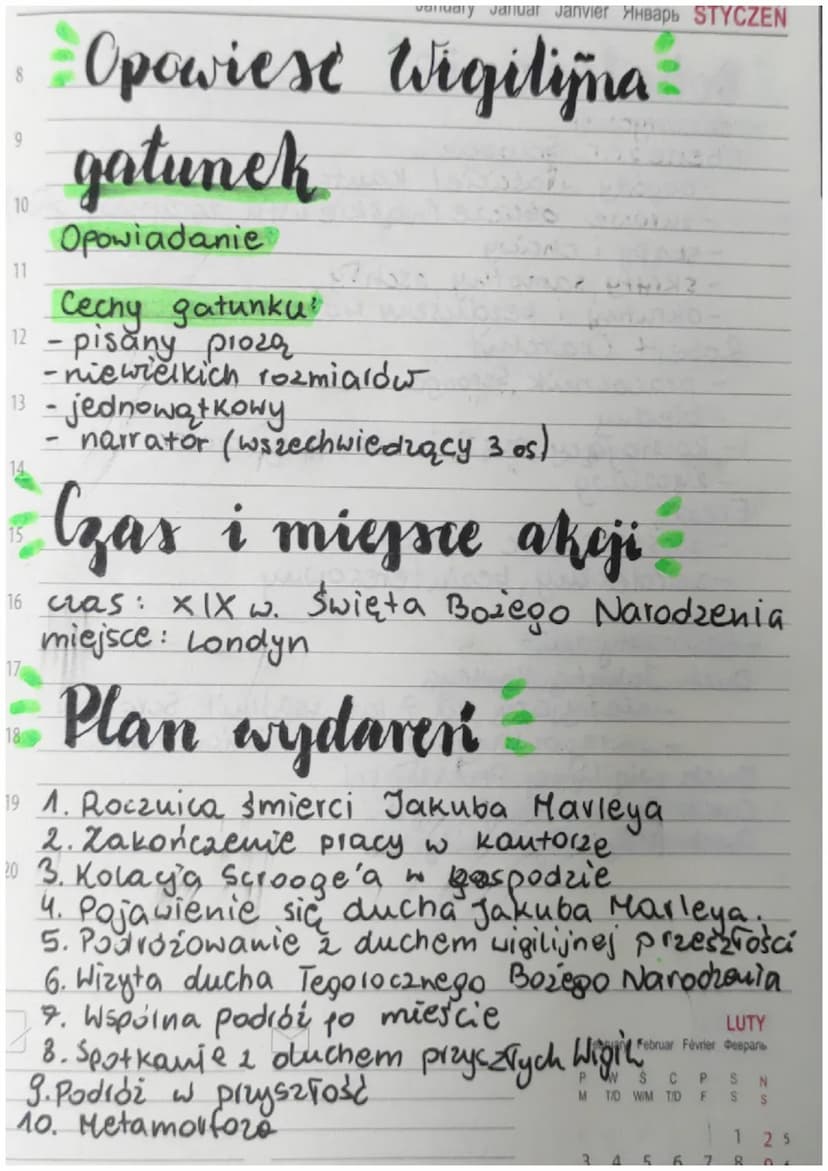 January Januar Janvier Январь STYCZEŃ
8
Opowieść Wigilijna
9
gatunek
10
Opowiadanie
11
Cechy gatunku:
12
- pisany prozą
- niewielkich rozmiarów
13
- jednowątkowy
- narrator (wszechwiedzący 3 os)
14
15
Czas i miejsce akcji
16
czas: XIX w. Święta Bożego Narodzenia
miejsce: Londyn
17
18
Plan wydarzeń
19
1. Rocznica śmierci Jakuba Marleya
2. Zakończenie pracy w kantorze
20
3. Kolacja Scrooge'a w gospodzie
4. Pojawienie się ducha Jakuba Marleya.
5. Podróżowanie z duchem wigilijnej przeszłości
6. Wizyta ducha Tegorocznego Bożego Narodzenia
7. Wspólna podróż po mieście
LUTY
Februar Février Февраль
8. Spotkanie z duchem przyszłych Wigilii
P W S C P S N
9. Podróż w przyszłość
M T/D W/M T/D F S S
10. Metamorfoza
1 2 5
3 4 5 6 7 8